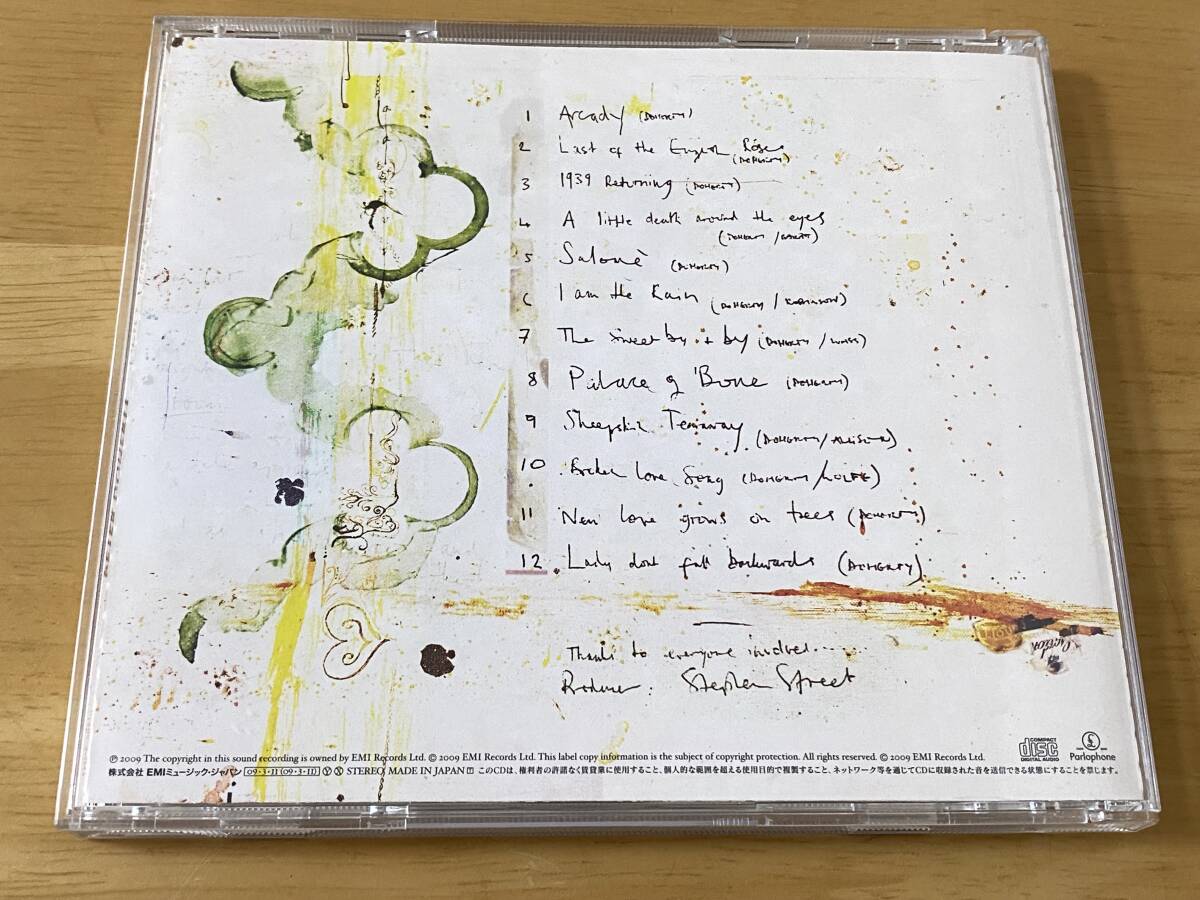 1 Arcady (DOHERTY)
2 Last of the English Roses
(DOHERTY)
3 1939 Returning (DOHERTY)
4 A little death around the eyes
(DOHERTY / BARAT)
5 Salomè (DOHERTY)
6 I am the Rain (DOHERTY / ROBINSON)
7 The sweet by + by (DOHERTY / WASS)
8 Palace of Bone (DOHERTY)
9 Sheepskin Tearaway
(DOHERTY / ALLISON)
10 Broken Love Song (DOHERTY / WOLFE)
11 New love grows on trees (DOHERTY)
12 Lady dont fall backwards (DOHERTY)
Thanks to everyone involved......
Producer: Stephen Street
℗ 2009 The copyright in this sound recording is owned by EMI Records Ltd. © 2009 EMI Records Ltd. This label copy information is the subject of copyright protection. All rights reserved. © 2009 EMI Records Ltd.
株式会社 EMIミュージック・ジャパン 09・3・11 (09・3・11) Ⓨ Ⓧ STEREO MADE IN JAPAN このCDは、権利者の許諾なく賃貸業に使用すること、個人的な範囲を超える使用目的で複製すること、ネットワーク等を通じてCDに収録された音を送信できる状態にすることを禁じます。
COMPACT
disc
DIGITAL AUDIO
Parlophone